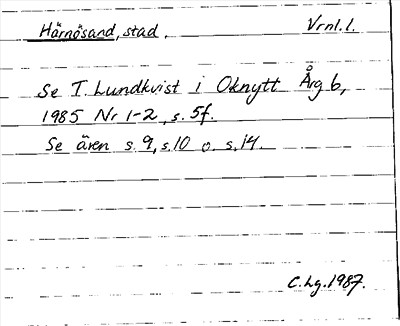 Härnösand, stad, Vrnl. l.
Se T. Lundkvist i Oknytt Årg 6,
1985 Nr 1-2, s. 5f.
Se även s. 9, s. 10 o. s. 14.
C. Lg. 1987.